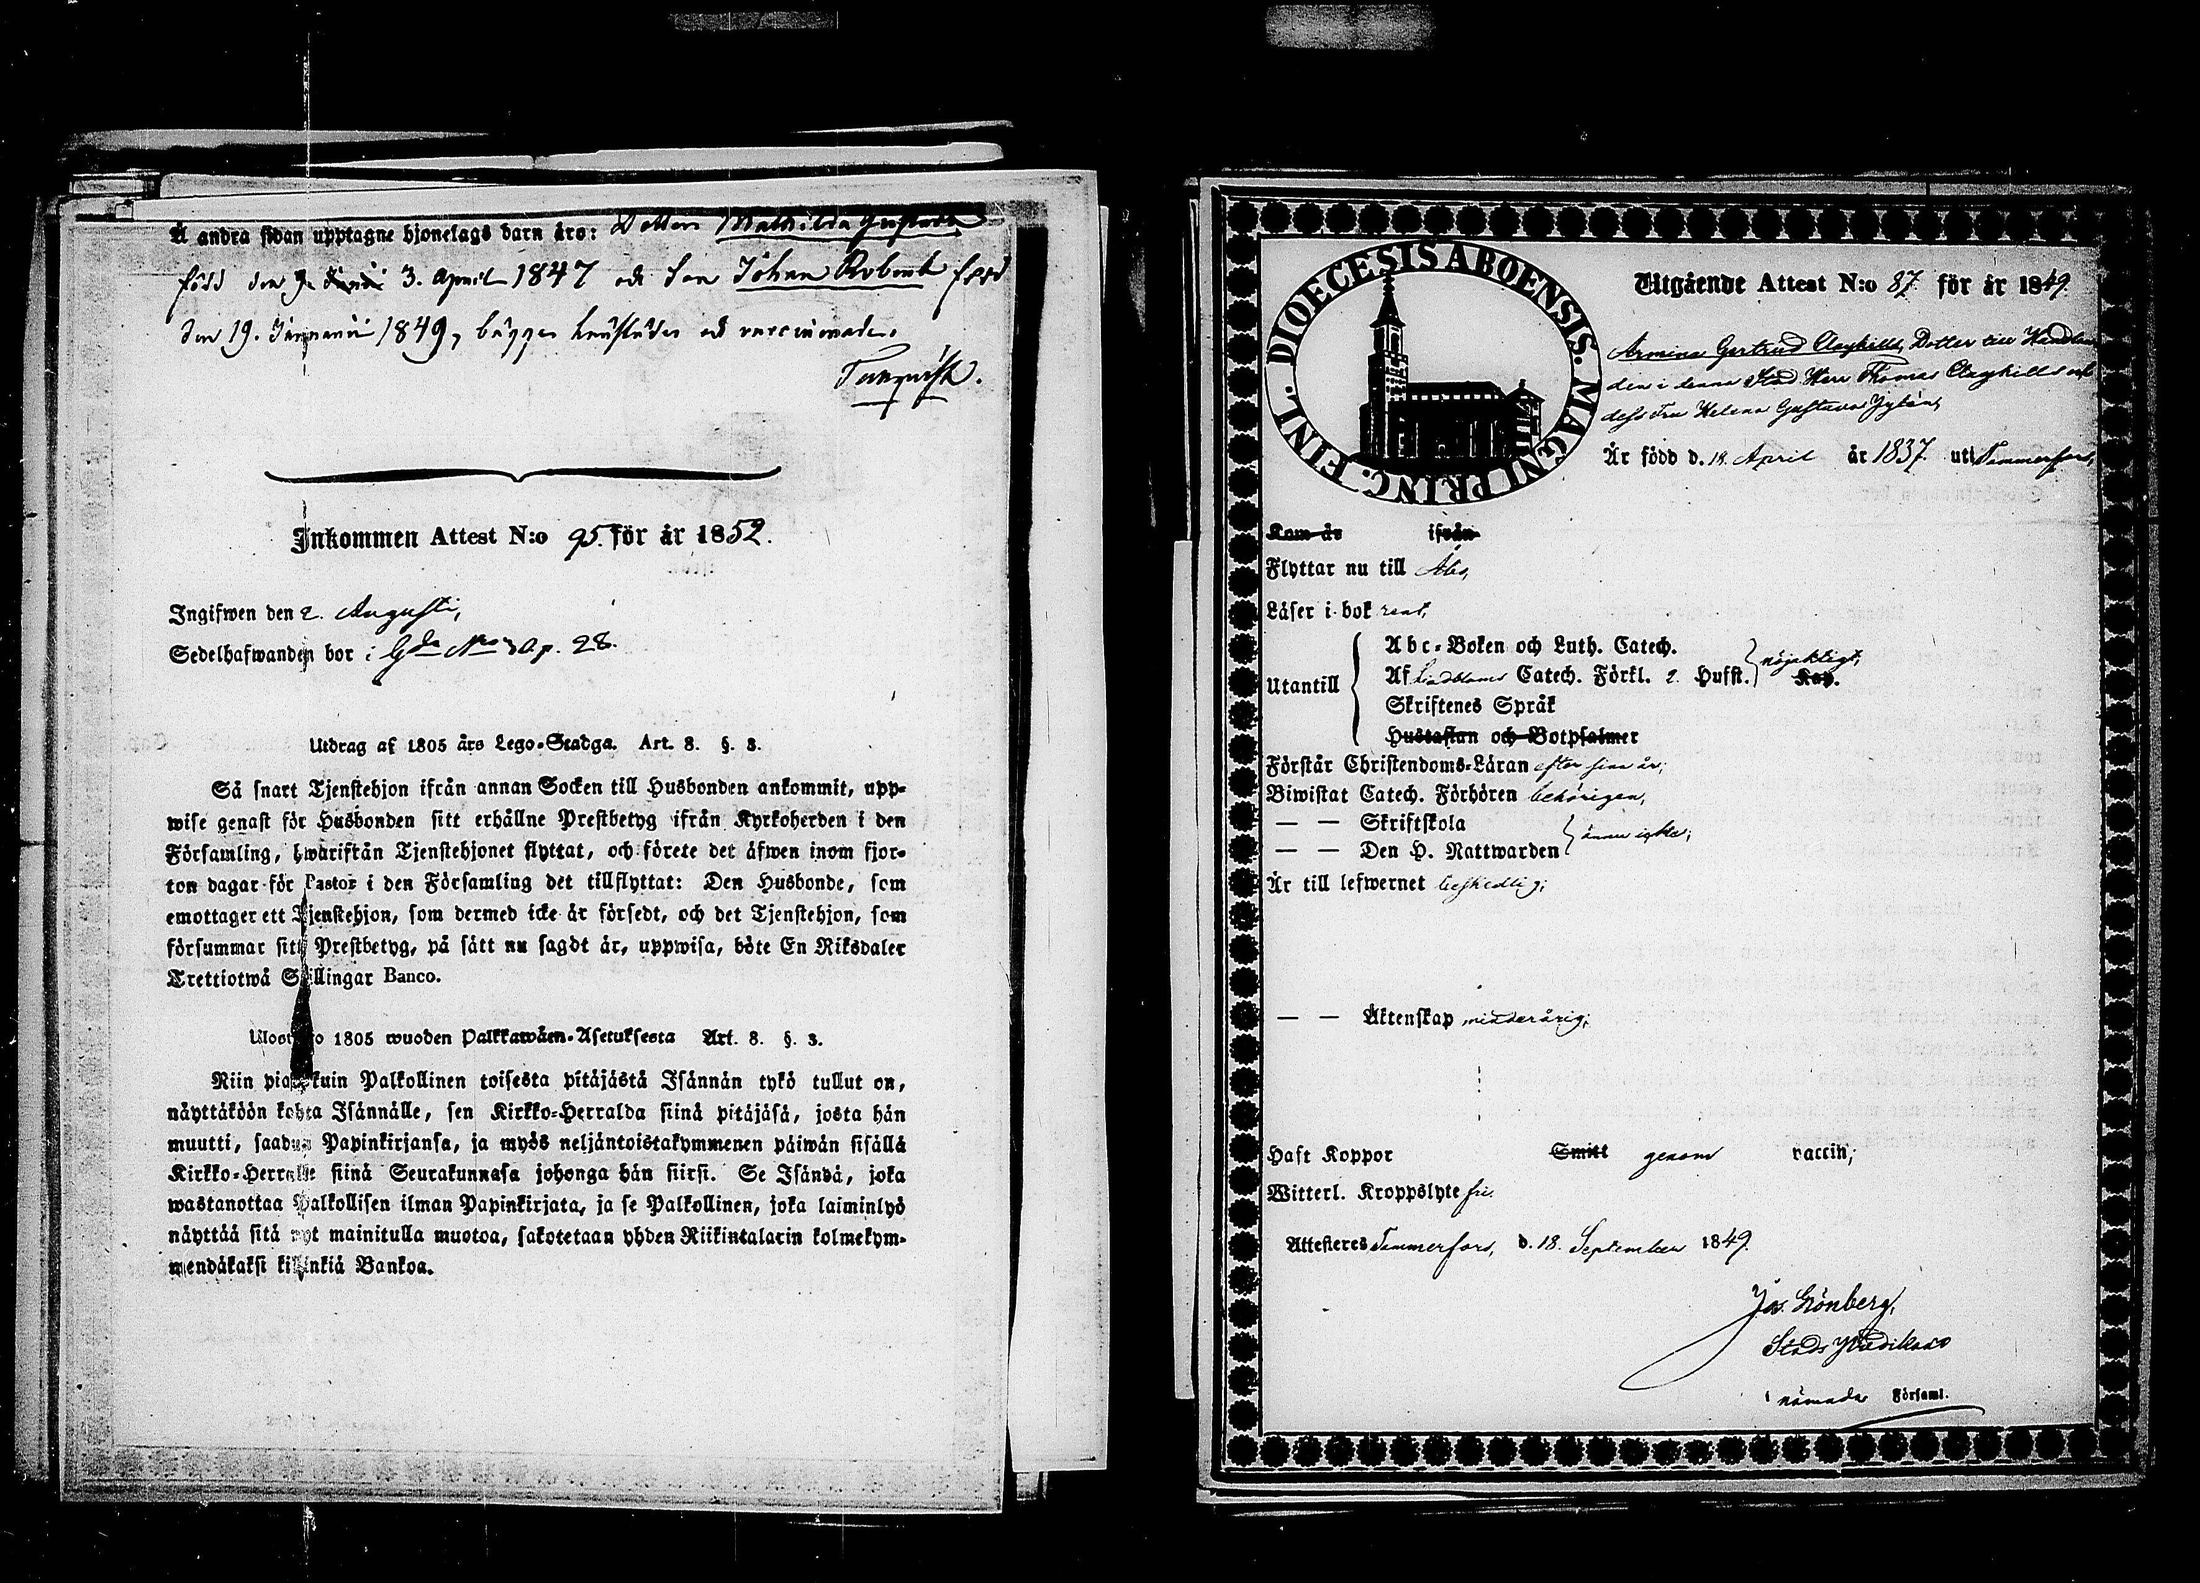 Å andra sidan upptagne hjonelags barn äro: Dottern Mathilda Gustava
född den 3. April 1847 och Son Johan Robert född
den 19. Januarii 1849, bägge och vaccinerade.
Inkommen Attest N:o 95. för år 1852.
Ingifwen den 2. Augusti,
Sedelhafwanden bor i Gda No 3 Ap. 28.
Utdrag af 1805 års Lego-Stadga. Art. 8. §. 3.
Så snart Tjenstehjon ifrån annan Socken till Husbonden ankommit, upp-
wise genast för Husbonden sitt erhållne Prestbetyg ifrån Kyrkoherden i den
Församling, hwarifrån Tjenstehjonet flyttat, och förete det äfwen inom fjor-
ton dagar för Pastor i den Församling det tillflyttat: Den Husbonde, som
emottager ett Tjenstehjon, som dermed icke är försedt, och det Tjenstehjon, som
försummar sitt Prestbetyg, på sätt nu sagdt är, uppwisa, böte En Riksdaler
Trettiotwå Skillingar Banco.
Ulosweto 1805 wuoden Palkkawäen-Asetuksesta Art. 8. §. 3.
Niin pian kuin Palkollinen toisesta pitäjästä Isännän tykö tullut on,
näyttäköön kohta Isännälle, sen Kirkko-Herralda siinä pitäjäsä, josta hän
muutti, saadun Papinkirjansa, ja myös neljäntoistakymmenen päiwän sisällä
Kirkko-Herralle siinä Seurakunnasa johonga hän siirsi. Se Isändä, joka
wastanottaa Palkollisen ilman Papinkirjata, ja se Palkollinen, joka laiminlyö
näyttää sitä nyt mainitulla muotoa, sakotetaan yhden Riikintalarin kolmekym-
mendäkaksi killinkiä Bankoa.
DIOECESIS ABOENSIS. MAGNI PRINC. FINL.
Utgående Attest N:o 87 för år 1849.
Armina Gertrud Clayhills, Dotter till Handlan
den i denna Stad Herr Thomas Clayhills och
dess Fru Helena Gustava Gylén,
Är född d. 18. April år 1837. uti Tammerfors,
Kom år ifrån
Flyttar nu till Åbo,
Läser i bok rent,
Utantill
Abc-Boken och Luth. Catech.
Af Lindbloms Catech. Förkl. 2. Hufst. Kap. nöjaktigt,
Skriftenes Språk
Hustaflan och Botpsalmer
Förstår Christendoms-Läran efter sina år;
Biwistat Catech. Förhören behörigen,
— — Skriftskola
— — Den H. Nattwarden ännu icke;
Är till lefwernet beskedlig;
— — Äktenskap minderårig;
Haft Koppor Smitt genom vaccin;
Witterl. Kroppslyte fri.
Attesteres Tammerfors, d. 18. September 1849.
Jos. Grönberg,
Stads Predikant
i nämnda Församl.